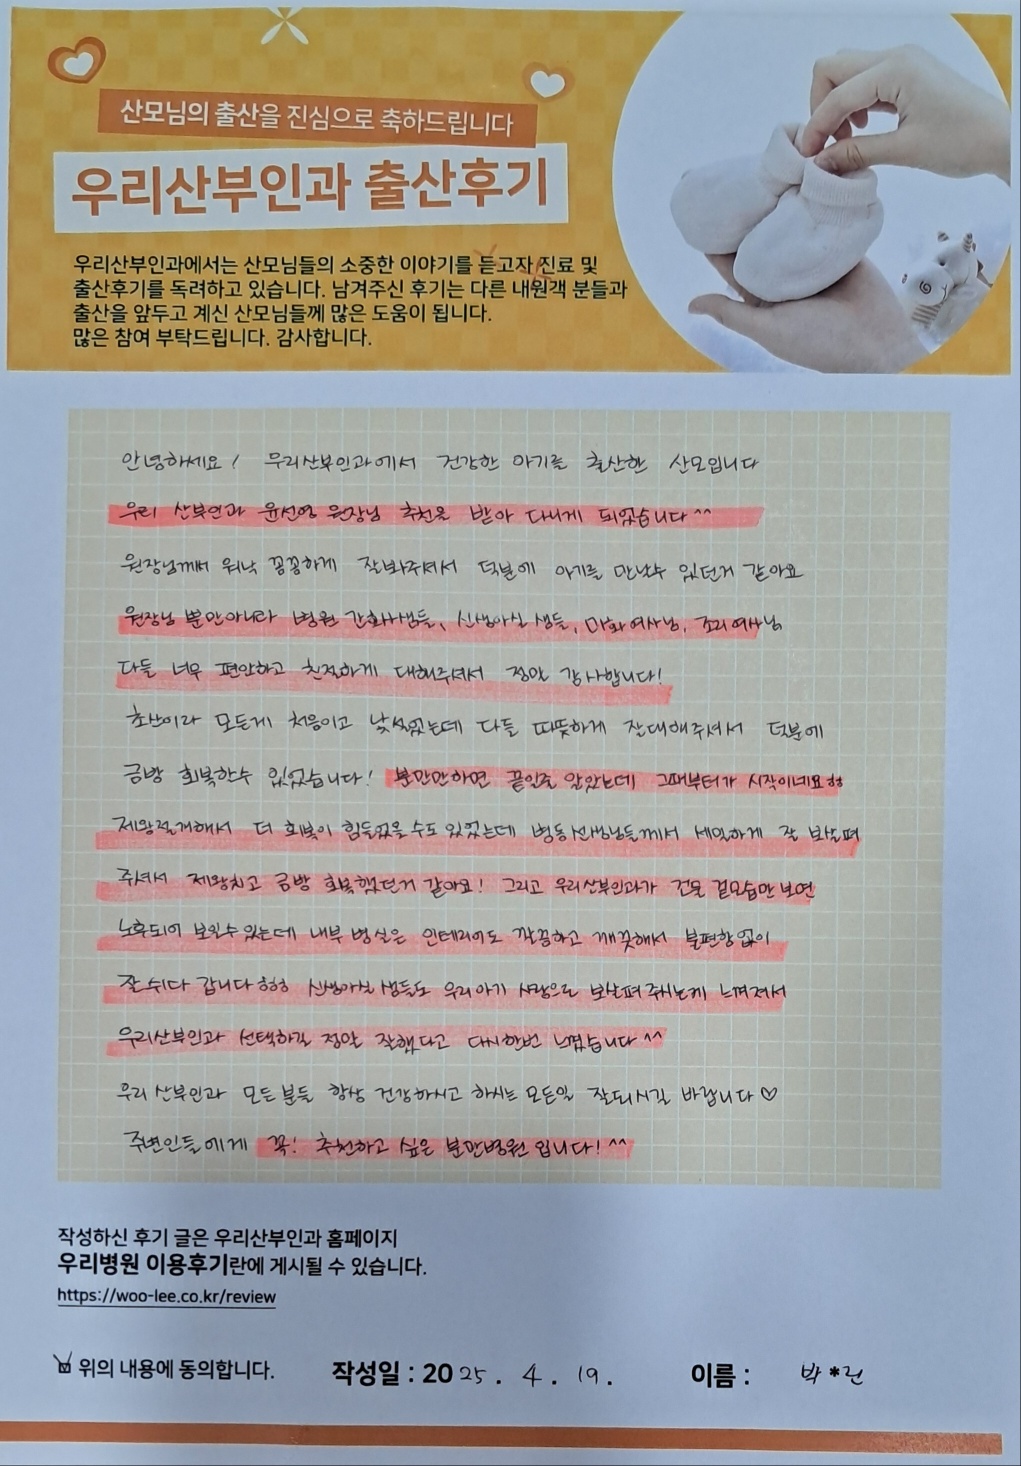 산모님의 출산을 진심으로 축하드립니다
우리산부인과 출산후기
우리산부인과에서는 산모님들의 소중한 이야기를 듣고자 진료 및
출산후기를 독려하고 있습니다. 남겨주신 후기는 다른 내원객 분들과
출산을 앞두고 계신 산모님들께 많은 도움이 됩니다.
많은 참여 부탁드립니다. 감사합니다.
안녕하세요! 우리산부인과에서 건강한 아기를 출산한 산모입니다
우리 산부인과 윤선영 원장님 추천을 받아 다니게 되었습니다^^
원장님께서 워낙 꼼꼼하게 잘봐주셔서 덕분에 아기를 만날수 있던거 같아요
원장님 뿐만아니라 병원 간호사샘들, 신생아실 샘들, 미화여사님, 조리여사님
다들 너무 편안하고 친절하게 대해주셔서 정말 감사합니다!
초산이라 모든게 처음이고 낯설었는데 다들 따뜻하게 잘대해주셔서 덕분에
금방 회복할수 있었습니다! 분만만하면 끝일줄 알았는데 그때부터가 시작이네요ㅎㅎ
제왕절개해서 더 회복이 힘들었을 수도 있었는데 병동선생님들께서 세밀하게 잘 보살펴
주셔서 제왕치고 금방 회복했던거 같아요! 그리고 우리산부인과가 건물 겉모습만 보면
노후되어 보일수 있는데 내부 병실은 인테리어도 깔끔하고 깨끗해서 불편함 없이
잘 쉬다 갑니다 ㅎㅎㅎ 신생아실 샘들도 우리아기 사랑으로 보살펴주시는게 느껴져서
우리산부인과 선택하길 정말 잘했다고 다시한번 느꼈습니다^^
우리 산부인과 모든분들 항상 건강하시고 하시는 모든일 잘되시길 바랍니다♡
주변인들에게 꼭! 추천하고 싶은 분만병원 입니다!^^
작성하신 후기 글은 우리산부인과 홈페이지
우리병원 이용후기란에 게시될 수 있습니다.
https://woo-lee.co.kr/review
위의 내용에 동의합니다. 작성일 : 2025. 4. 19. 이름 : 박*린